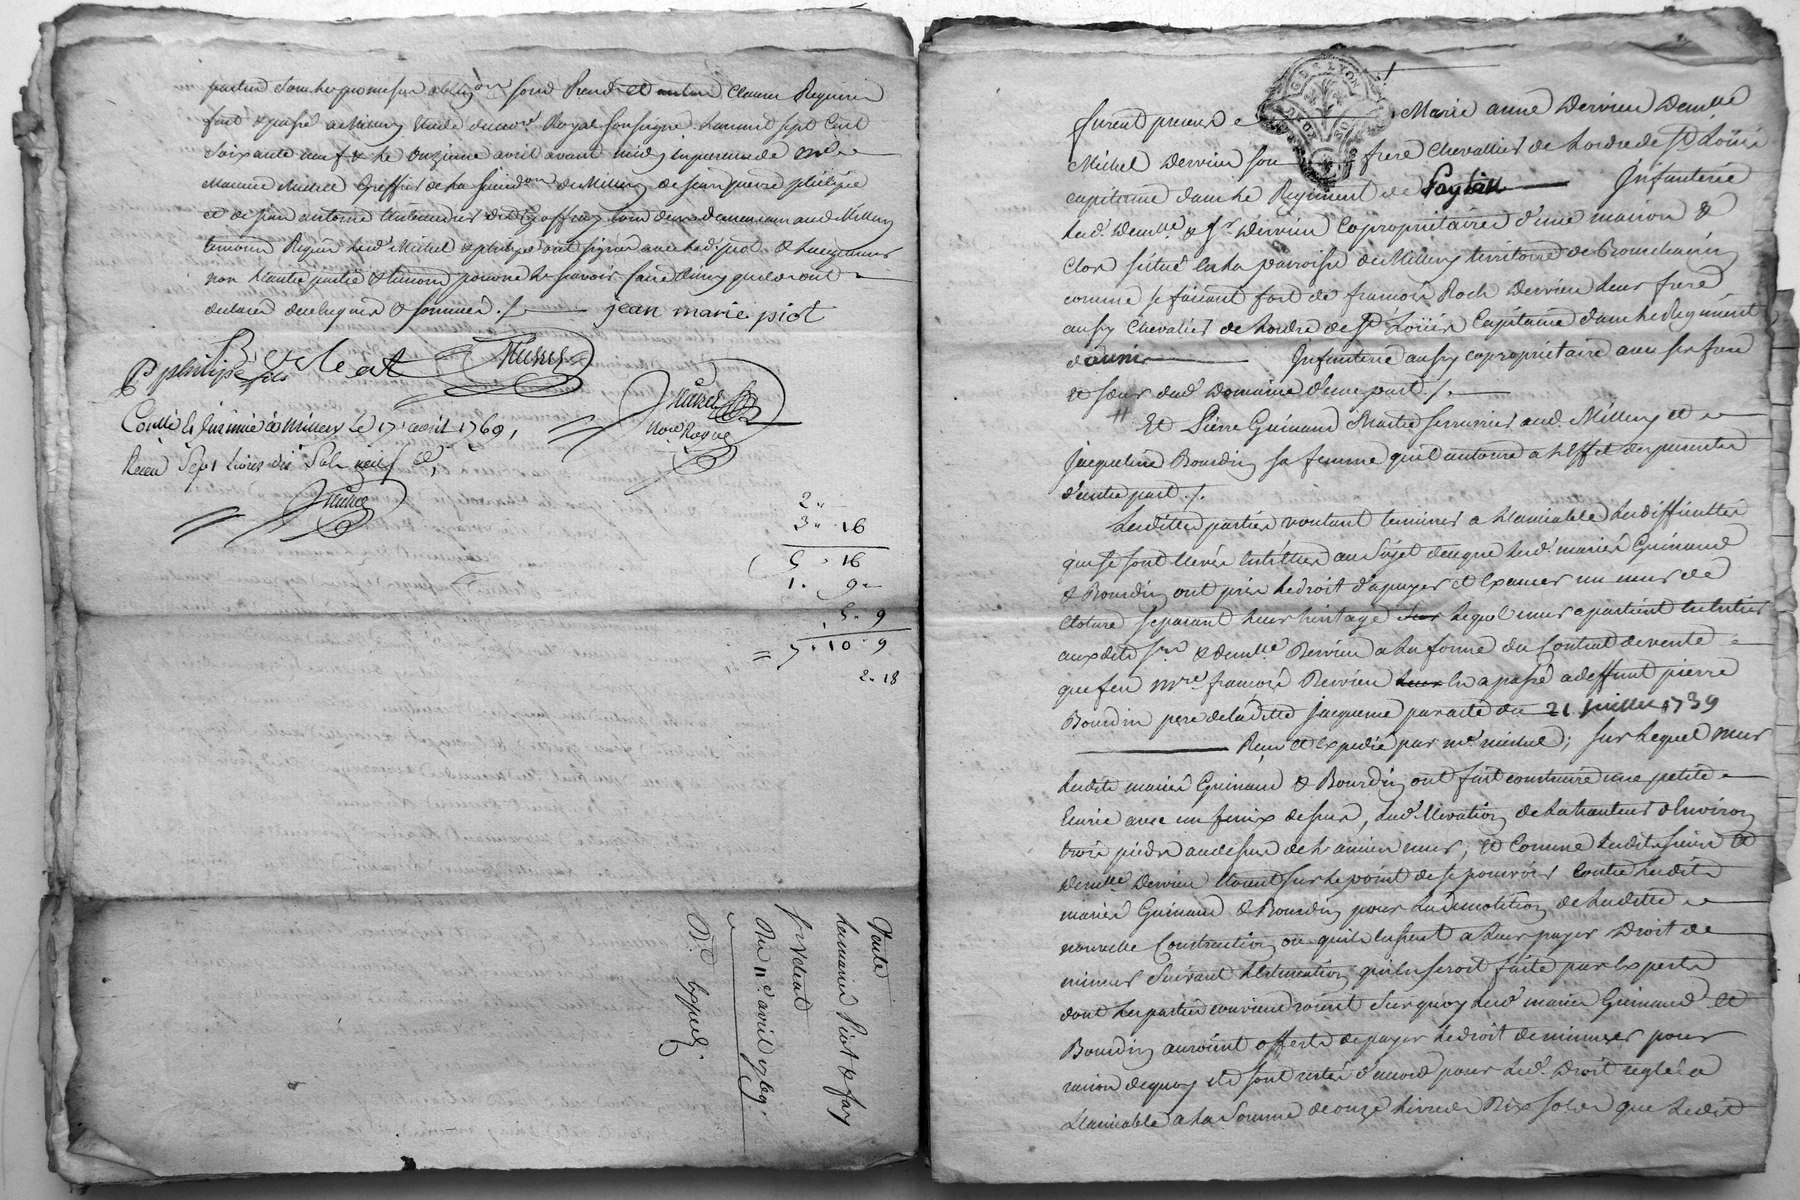 fait & passé a Millery Etude du no.re Royal soussigné L'an mil sept Cent
soixante neuf & le onzieme avril avant midy en presence de m.e
Maurice Michel Greffier de la de Millery de Jean pierre philipe
et de jean antoine demeurant aud Millery
temoins Requis led.s Michel & philipe ont signé avec led. piot &
non l'autre partie & temoin pour ne le savoir faire ainsy qu'ils ont
declaré de ce enquis & sommés ./. jean marie piot
P philipe fils Michel
Michel
No.re Royal
Con.llé & Insinué à Millery Le 17 avril 1769,
Receu Sept livres dix Sols neuf d.
Michel
2 "
3 " 16
5 . 16
1 . 9
. 5 . 9
= 7 . 10 . 9
2 . 18
Vente
les mariés Piot & fay
Sr Veleat
Du 11.e avril 1769.
D.d Expedié.
GDE LYON
1
furent presents Marie anne Dervieu Demlle
Michel Dervieu son frere Chevallier de Lordre de St Loüis
capitaine dans le Regiment de Infanterie
lesd. Demlle & Sr Dervieu Copropriétaires d'une maison &
Clos situés en la parroisse de Millery territoire de
comme se faisant fort de françois Roch Dervieu leur frere
aussy Chevalier de Lordre de St Loüis Capitaine dans le Regiment
d'aunis Infanterie aussy copropriétaire avec ses frere
et sœur dud. Domaine d'une part ./.
Et Pierre Guinand Maitre serrurier aud. Millery et
Jacqueline Bourdin sa femme qu'il autorise a l'Effet des presentes
d'autre part ./.
Lesdittes parties voulant terminer a L'amiable les difficultés
qui se sont Elevées entr'Elles au Sujet de ce que lesd. mariés Guinand
& Bourdin ont pris le droit d'apuyer et Exaucer un mur de
Cloture separant leur heritage sur lequel mur apartient en Entier
auxdits srs & demlle Dervieu a la forme du Contrat de vente
que feu mre françois Dervieu leur En a passé a deffunt pierre
Bourdin pere de laditte Jacqueline par acte du 21 juillet 1739
Receu Et Expedié par me michel; sur lequel mur
lesdits mariés Guinand & Bourdin ont fait construire une petite
Ecurie avec un fenix dessus, lad. Elevation de la hauteur d'Environ
trois pieds au dessus de l'ancien mur, et Comme lesdits sieurs &
demlle Dervieu Etoient sur le point de se pourvoir Contre lesdits
mariés Guinand & Bourdin pour la demolition de laditte
nouvelle Construction ou qu'ils Eussent a leur payer Droit de
mimur Suivant L'estimation qui En seroit faite par Experts
dont les parties conviendroient Sur quoy lesd. mariés Guinand et
Bourdin auroient offerts de payer le droit de mimur pour
raison de quoy ils sont restés d'accord pour led. Droit reglé a
L'amiable a la Somme de onze livres Dix sols que lesdits